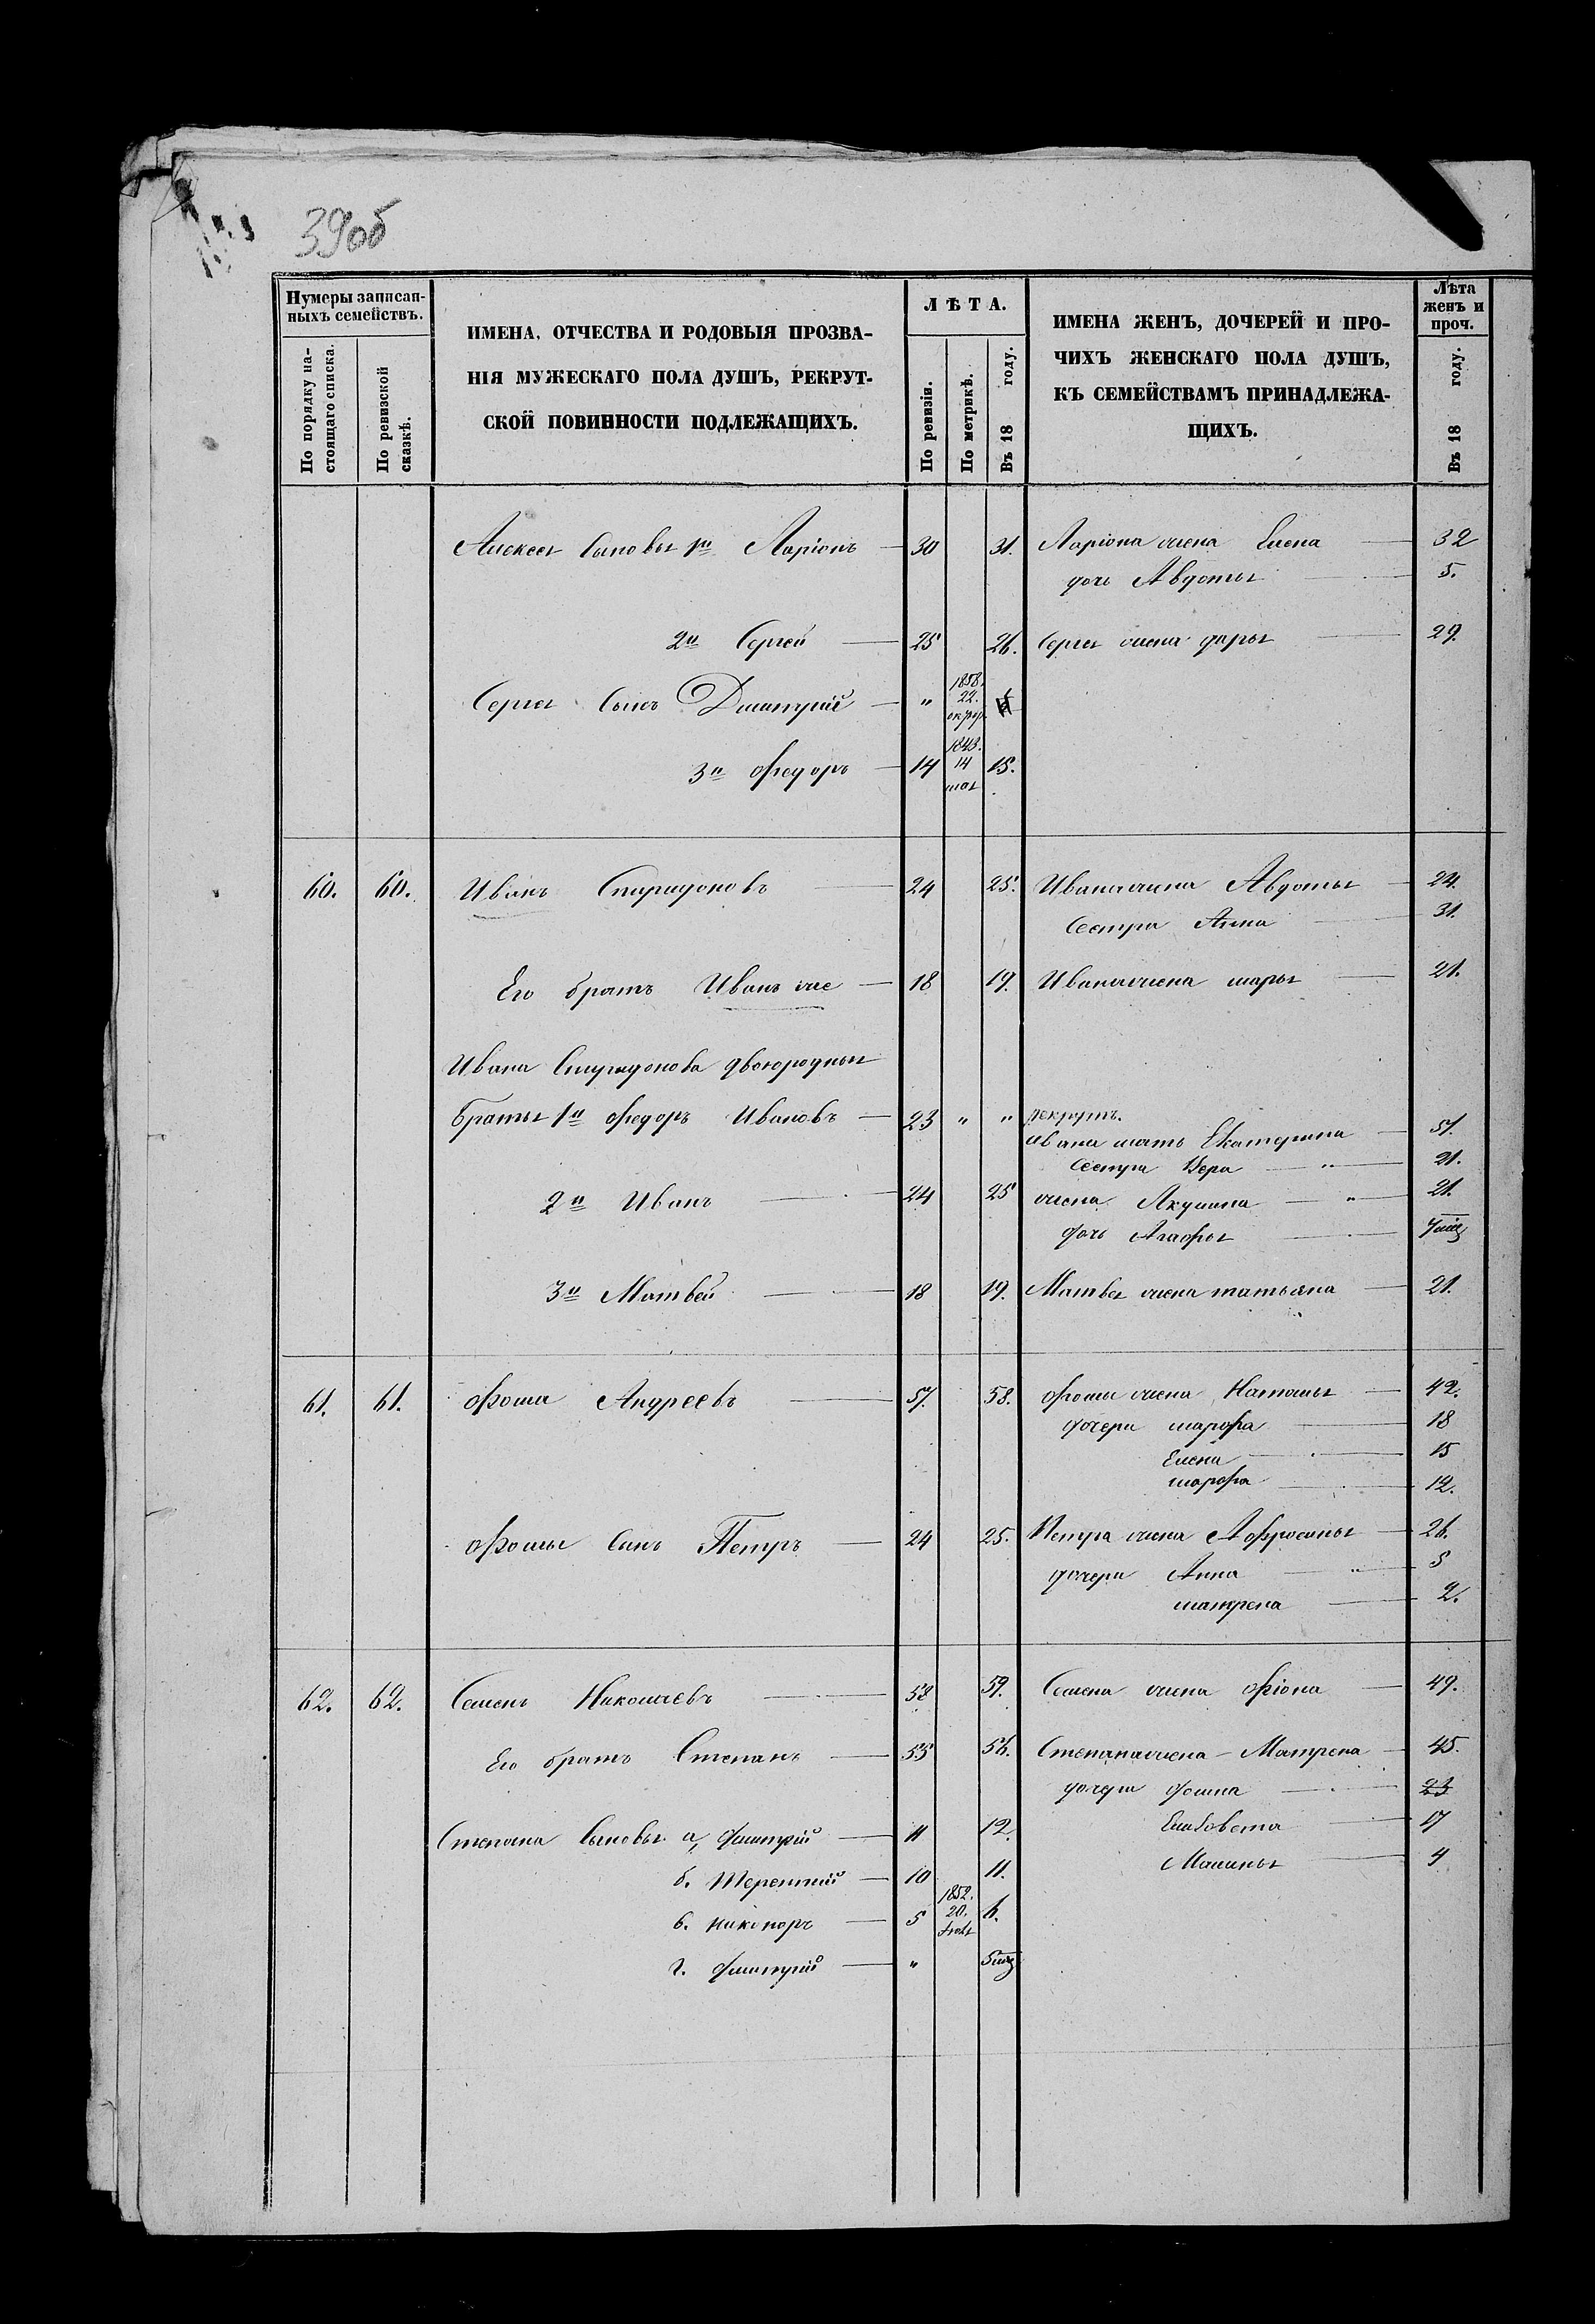 39об
Нумеры записан-
ныхъ семействъ.
По порядку на-
стоящаго списка.
По ревизской
сказкѣ.
ИМЕНА, ОТЧЕСТВА И РОДОВЫЯ ПРОЗВА-
НІЯ МУЖЕСКАГО ПОЛА ДУШЪ, РЕКРУТ-
СКОЙ ПОВИННОСТИ ПОДЛЕЖАЩИХЪ.
ЛѢТА.
По ревизіи.
По метрикѣ.
Въ 18 году.
ИМЕНА ЖЕНЪ, ДОЧЕРЕЙ И ПРО-
ЧИХЪ ЖЕНСКАГО ПОЛА ДУШЪ,
КЪ СЕМЕЙСТВАМЪ ПРИНАДЛЕЖА-
ЩИХЪ.
Лѣта
женъ и
проч.
Въ 18 году.
Алексея сыновья 1й Ларіонъ — 30 31. Ларіона жена Елена — 32
дочь Авдотья — 5.
2й Сергей — 25 26. Сергея жена дарья — 29.
Сергея сынъ Дмитрій — " 1858. 22. октяр.
3й федоръ — 14 1843. 14 мая 15.
60. 60. Иванъ Спиридоновъ — 24 25. Ивана жена Авдотья — 24.
Сестра Анна — 31.
Его братъ Иванъ же — 18 19. Ивана жена марья — 21.
Ивана Спиридонова двоюродныя
братья 1й федоръ Ивановъ — 23 " " рекрутъ.
ивана мать Екатерина — 51.
Сестра Вера — " — 21.
2й Иванъ — 24 25 жена Акулина — " — 21.
дочь Агафья — 7 мес
3й Матвей — 18 19. Матвея жена татьяна — 21.
61. 61. фома Андреевъ — 57. 58. фомы жена Наталья — 42.
дочери марфа — 18
Елена — 15
марфа — 12.
фомы сынъ Петръ — 24 25. Петра жена Афросинья — 26.
дочери Анна — " — 5
матрена — 2.
62. 62. Семенъ Николаевъ — 58 59. Семена жена фіона — 49.
Его братъ Степанъ — 55 56. Степана жена — Матрена — 45.
дочери фомна — 23
Степана сыновья а, дмитрій — 11 12. Елизовета — 17
б. Терентій — 10 11. Маланья — 4
в. никоноръ — 5 1852. 20. 6.
г. дмитрій — " 5 мес